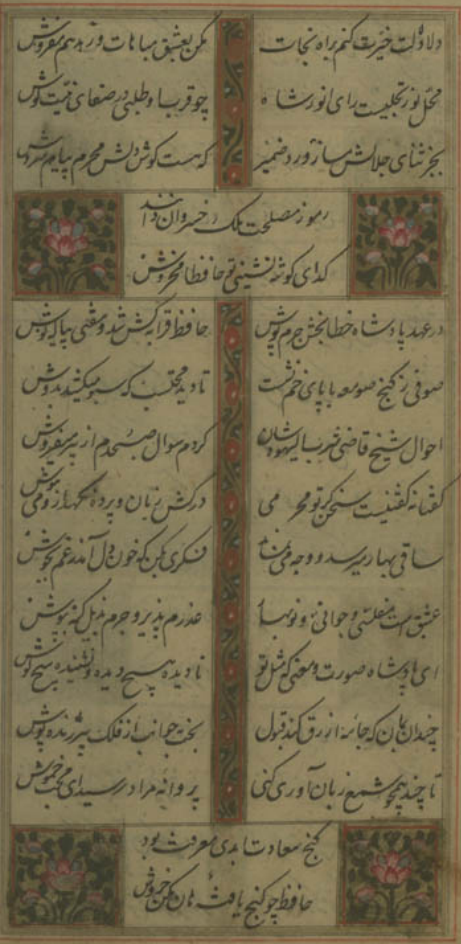 دلا دلالت خیرت کنم براه نجات
مکن بفسق مباهات و زهد هم مفروش
محل نور تجلیست رای انور شاه
چو قرب او طلبی در صفای نیت کوش
بجز ثنای جلالش مساز ورد ضمیر
که هست گوش دلش محرم پیام سروش
رموز مصلحت ملک خسروان دانند
کدای گوشه نشینی تو حافظا مخروش
در عهد پادشاه خطا بخش جرم پوش
حافظ قرابه کش شد و مفتی پیاله نوش
صوفی ز کنج صومعه با پای خم نشست
تا دید محتسب که سبو میکشد بدوش
احوال شیخ و قاضی و شرب الیهودشان
کردم سوال صبحدم از پیر میفروش
گفتا نه گفتنیست سخن گر تو محرمی
درکش زبان و پرده نگهدار و می بنوش
ساقی بهار میرسد و وجه می نماند
فکری بکن که خون دل آمد ز غم بجوش
عشق است و مفلسی و جوانی و نوبهار
عذرم پذیر و جرم بذیل کرم بپوش
ای پادشاه صورت و معنی که مثل تو
نادیده هیچ دیده و نشنیده هیچ گوش
چندان بمان که جامه ازرق کند قبول
بخت جوانت از فلک پیر ژنده پوش
تا چند همچو شمع زبان آوری کنی
پروانه مراد رسید ای محب خموش
کنج سعادت ابدی معرفت بود
حافظ چو کنج یافته